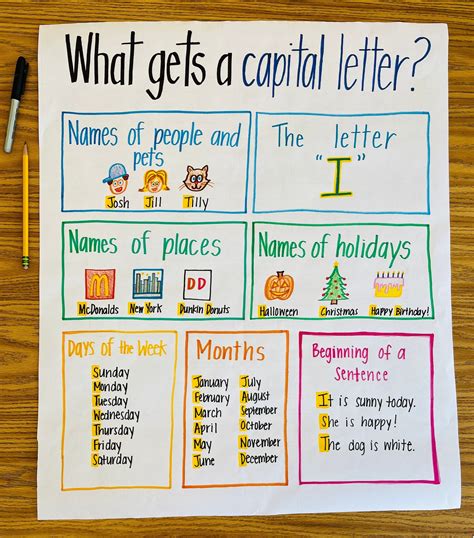 What gets a capital letter?
Names of people and
pets
Josh Jill Tilly
The letter
"I"
Names of places
M
DD
McDonalds New York Dunkin Donuts
Names of holidays
Halloween Christmas Happy Birthday!
Days of the Week
Sunday
Monday
Tuesday
Wednesday
Thursday
Friday
Saturday
Months
January July
February August
March September
April October
May November
June December
Beginning of a
Sentence
It is sunny today.
She is happy!
The dog is white.